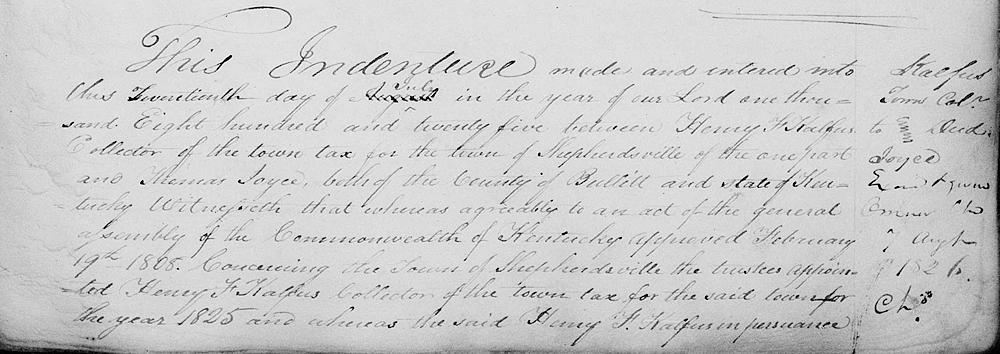 This Indenture made and entered into
this Twentieth day of August July in the year of our Lord one thou=
=sand Eight hundred and twenty five between Henry F Kalfus
Collector of the town tax for the town of Shepherdsville of the one part
and Thomas Joyce, both of the County of Bullitt and state of Ken=
=tucky Witnesseth that whereas agreeably to an act of the general
assembly of the Commonwealth of Kentucky approved February
19th 1808. Concerning the Town of Shepherdsville the trustees appoin=
=ted Henry F Kalfus Collector of the town tax for the said town for
the year 1825 and whereas the said Henry F. Kalfus in persuance
Kalfus
Town Colr
to Deed
Joyce
Augt
1826.